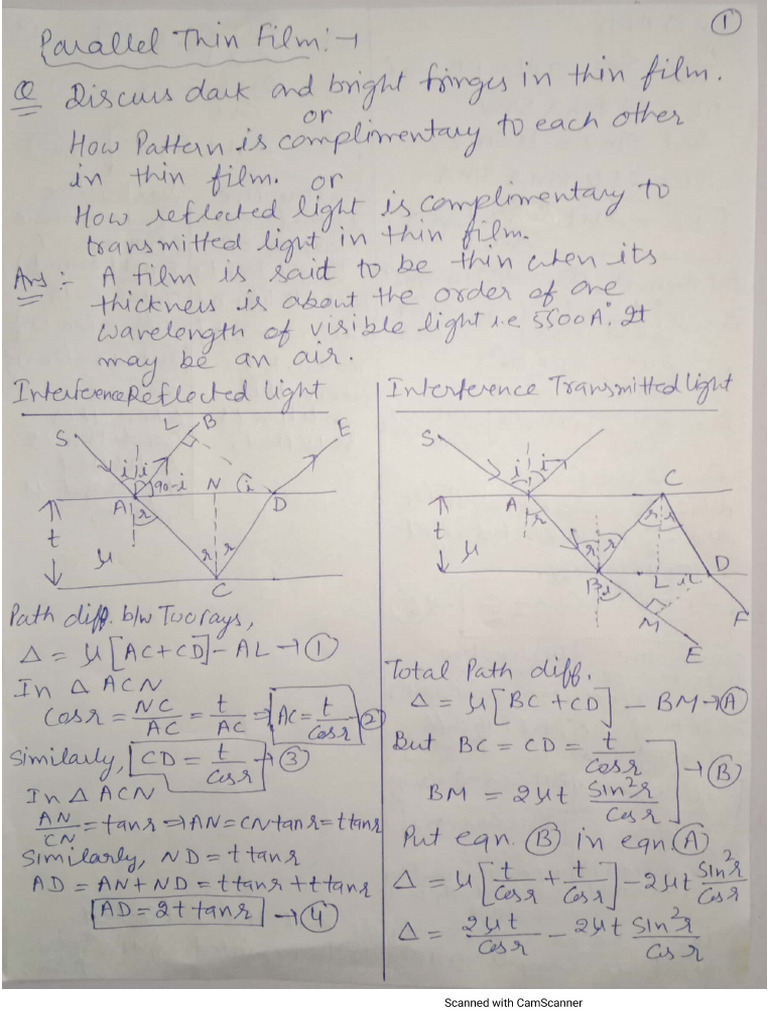 ①
Parallel Thin Film:→
Q Discuss dark and bright fringes in thin film.
or
How Pattern is complimentary to each other
in thin film. or
How reflected light is complimentary to
transmitted light in thin film.
Ans:- A film is said to be thin when its
thickness is about the order of one
wavelength of visible light i.e 5500A°. It
may be an air.
Interference Reflected light
S L B E
i i 90-i N i
A r D
t μ r r
C
Path diff. b/w Two rays,
Δ = μ[AC+CD]-AL → ①
In Δ ACN
Cosr = NC/AC = t/AC ⇒ AC = t/Cosr ②
Similarly, CD = t/Cosr → ③
In Δ ACN
AN/CN = tanr ⇒ AN = CN tanr = t tanr
Similarly, ND = t tanr
AD = AN+ND = t tanr + t tanr
AD = 2t tanr → ④
Interference Transmitted light
S
i i C
A r r r
t μ r r D
B i L i
M F
E
Total Path diff.
Δ = μ[BC+CD] - BM → Ⓐ
But BC = CD = t/Cosr
BM = 2μt Sin²r/Cosr → Ⓑ
Put eqn. Ⓑ in eqn Ⓐ
Δ = μ[t/Cosr + t/Cosr] - 2μt Sin²r/Cosr
Δ = 2μt/Cosr - 2μt Sin²r/Cosr
Scanned with CamScanner